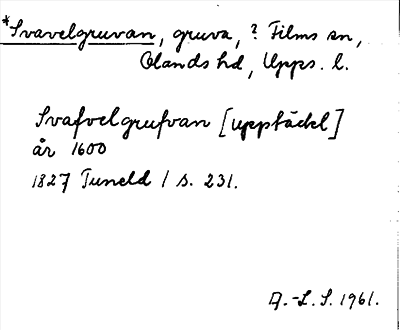 *Svavelgruvan, gruva, ? Films sn,
Olands hd, Upps. l.
Svafvelgrufvan [upptäckt]
år 1600
1827 Tuneld 1 s. 231.
A.-L. S. 1961.